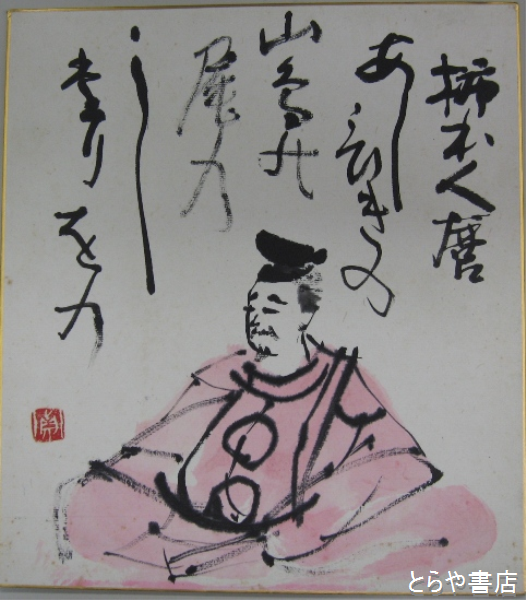 柿本人麿
あし引きの
山鳥の
尾の
し
堂りをの
とらや書店